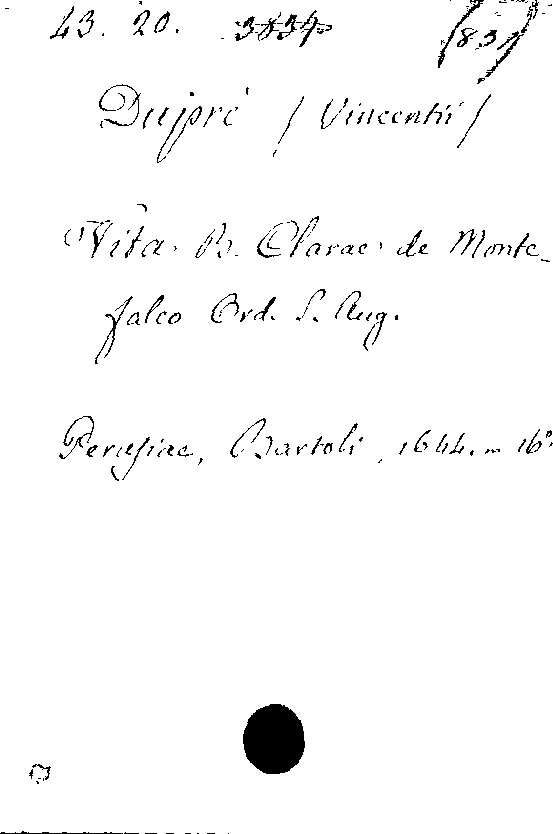 43. 20. 3834 (831)
Dupré / Vincentii /
Vita B. Clarae de Monte-
falco Ord. S. Aug.
Perusiae, Bartoli, 1644. in 16°.